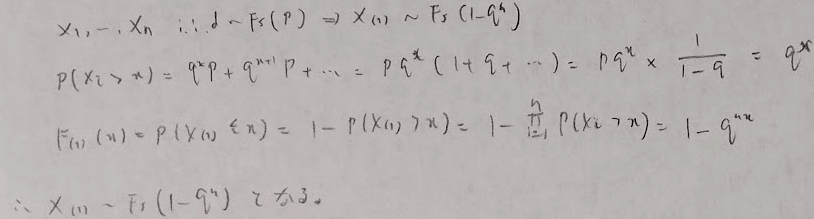 X₁, …, Xₙ i.i.d ~ Fs(p) ⇒ X₍₁₎ ~ Fs(1-qⁿ)
P(Xᵢ > x) = qˣp + qˣ⁺¹p + … = pqˣ(1 + q + …) = pqˣ × 1/(1-q) = qˣ
F₍₁₎(x) = P(X₍₁₎ ≤ x) = 1 - P(X₍₁₎ > x) = 1 - ∏ⁿᵢ₌₁ P(Xᵢ > x) = 1 - qⁿˣ
∴ X₍₁₎ ~ Fs(1-qⁿ) となる。